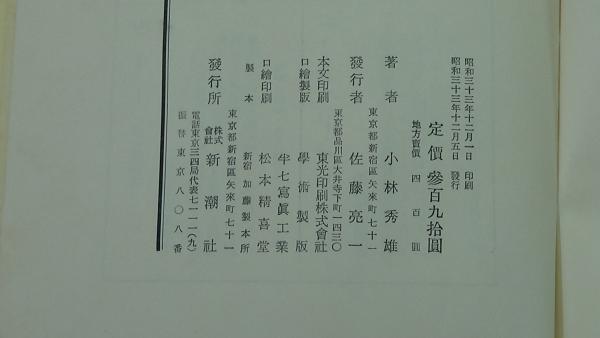 昭和三十三年十二月一日 印刷
昭和三十三年十二月五日 發行
定價 參百九拾圓
地方賣價 四百圓
著者 小林秀雄
東京都新宿區矢來町七十一
發行者 佐藤亮一
東京都品川區大井寺下町一四三〇
本文印刷 東光印刷株式會社
口繪製版 學術製版
半七寫眞工業
口繪印刷 松本精喜堂
製本 新宿 加藤製本所
東京都新宿區矢來町七十一
發行所 株式會社 新潮社
電話東京三四局代表七一一一(九)
振替東京八〇八番